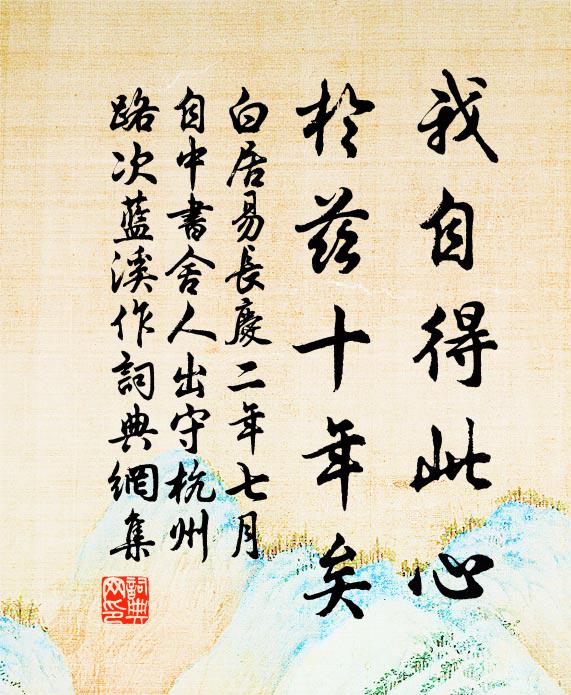 我自得此心
於茲十年矣
白居易長慶二年七月
自中書舍人出守杭州
路次藍溪作詞典網集
詞典
网印